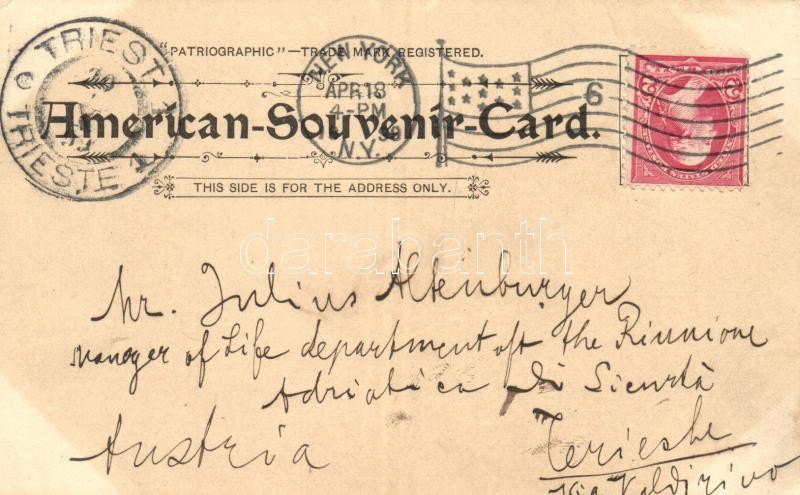 TRIEST
TRIESTE 1
"PATRIOGRAPHIC"—TRADE MARK REGISTERED.
NEW YORK
APR 18
4-PM
N.Y.
6
American-Souvenir-Card.
THIS SIDE IS FOR THE ADDRESS ONLY.
darabanth
Mr. Julius Altenburger
manager of Life department oft the Riunione
Adriatica Di Sicurtà
Austria
Terieste
Via Valdirivo